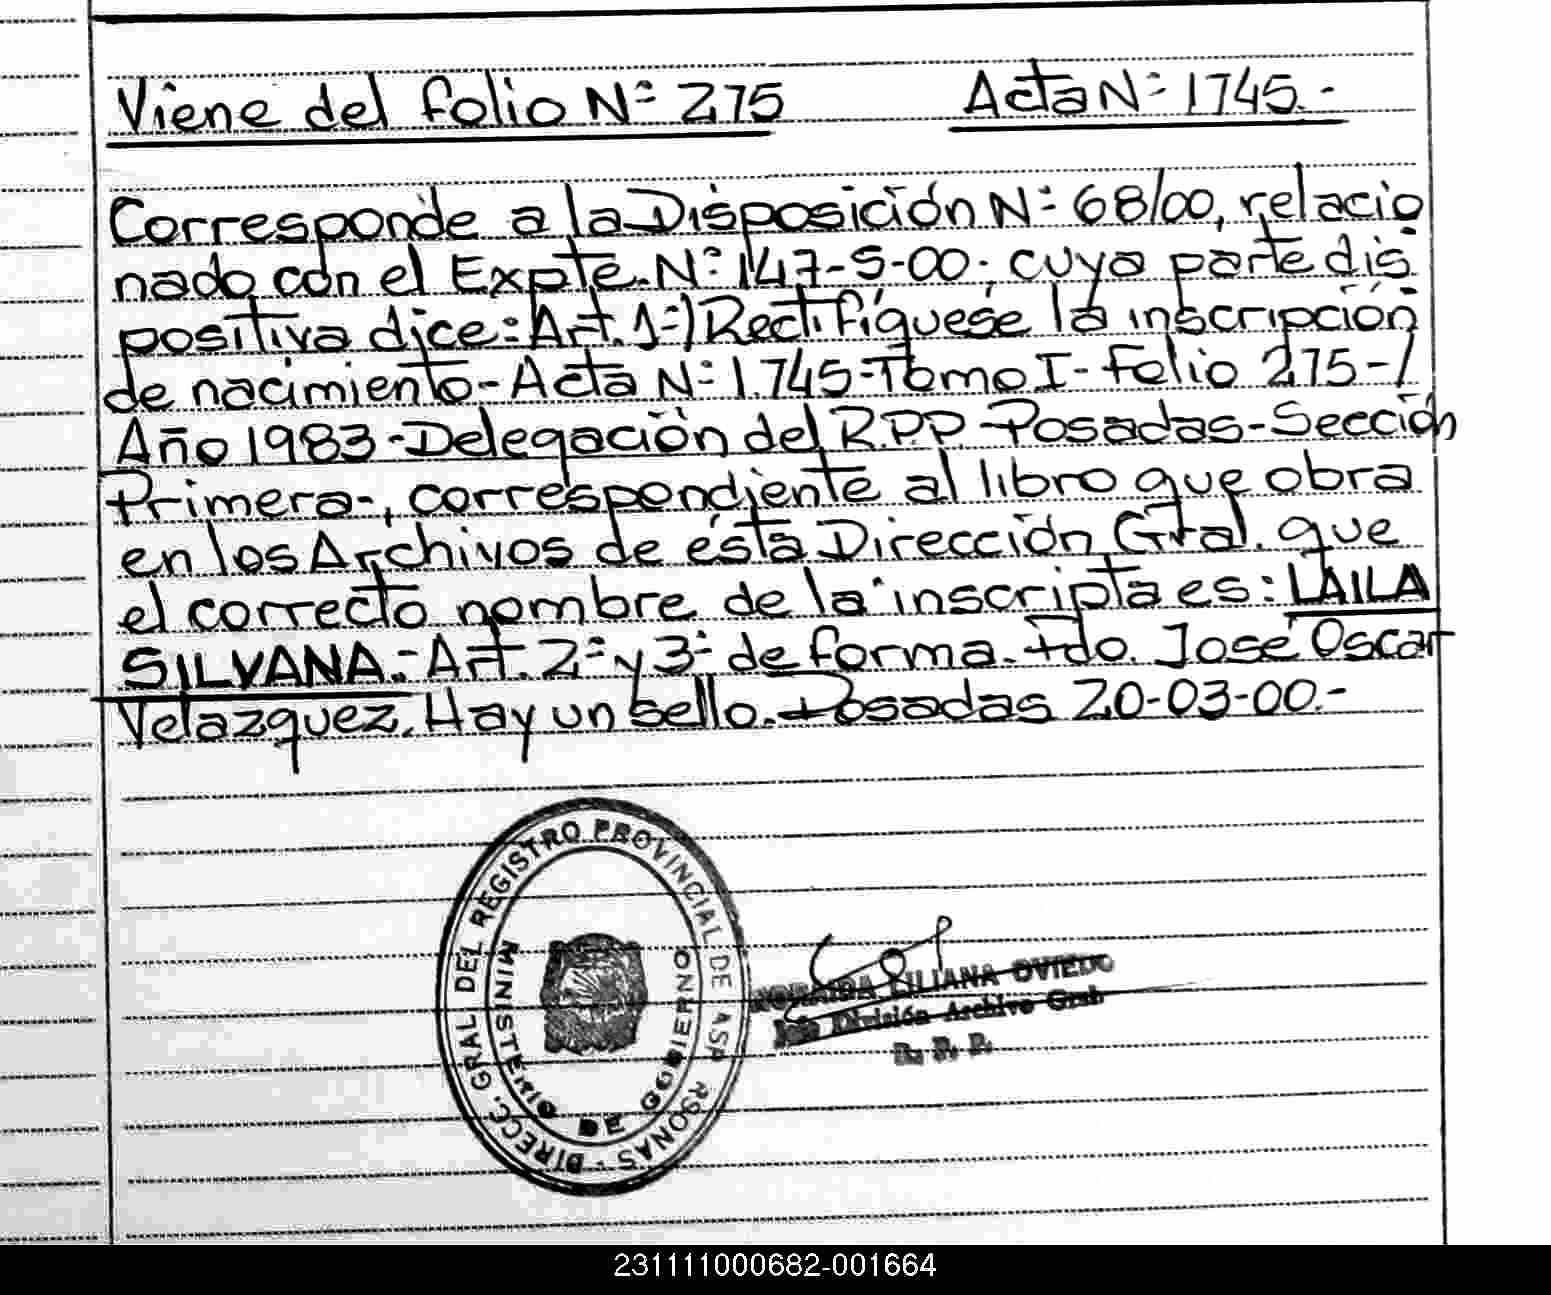 Viene del folio Nº 275 Acta Nº 1745.-
Corresponde a la Disposición Nº 68/00, relacio
nado con el Expte. Nº 147-S-00; cuya parte dis
positiva dice: Art. 1º) Rectifíquese la inscripción
de nacimiento - Acta Nº 1.745 - Tomo I - Folio 275 - /
Año 1983 - Delegación del R.P.P. - Posadas - Sección
Primera -, correspondiente al libro que obra
en los Archivos de ésta Dirección Gral. que
el correcto nombre de la inscripta es: LAILA
SILVANA.- Art. 2º y 3º de forma. Fdo. José Oscar
Velazquez. Hay un sello. Posadas 20-03-00.-
DIRECC. GRAL DEL REGISTRO PROVINCIAL DE
MINISTERIO DE GOBIERNO
LILIANA OVIEDO
División Archivo Gral.
R. P. P.
231111000682-001664